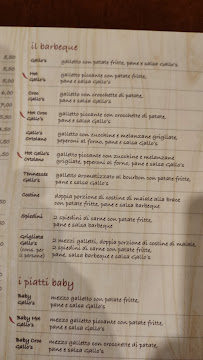 il barbeque
Gallo's galletto con patate fritte, pane e salsa Gallo's
Hot Gallo's galletto piccante con patate fritte,
pane e salsa Gallo's
Croc Gallo's galletto con crocchette di patate,
pane e salsa Gallo's
Hot Croc Gallo's galletto piccante con crocchette di patate,
pane e salsa Gallo's
Gallo's Ortolano galletto con zucchine e melanzane grigliate,
peperoni al forno, pane e salsa Gallo's
Hot Gallo's Ortolano galletto piccante con zucchine e melanzane
grigliate, peperoni al forno, pane e salsa Gallo's
Tennessee Gallo's galletto aromatizzato al bourbon con patate
fritte, pane e salsa Gallo's
Costine doppia porzione di costine di maiale alla brace
con patate fritte, pane e salsa barbeque
Spiedini 2 spiedini di carne con patate fritte,
pane e salsa barbeque
Grigliata Gallo's 2 mezzi galletti, doppia porzione di costine di
maiale, 2 spiedini di carne con patate fritte,
pane, salsa barbeque e salsa Gallo's
i piatti baby
Baby Gallo's mezzo galletto con patate fritte,
pane e salsa Gallo's
Baby Hot Gallo's mezzo galletto piccante con patate fritte,
pane e salsa Gallo's
Baby Croc Gallo's mezzo galletto con crocchette di patate,